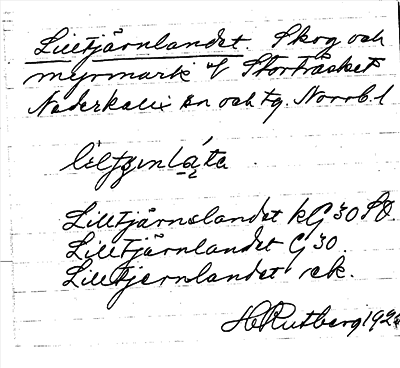 Lilltjärnlandet. Skog och
myrmark V Storträsket
Nederkalix sn och tg. Norrb. l
Lilltjärnslandet kG 30 SO.
Lilltjärnlandet G 30.
Lilltjernlandet rek.
H Rutberg